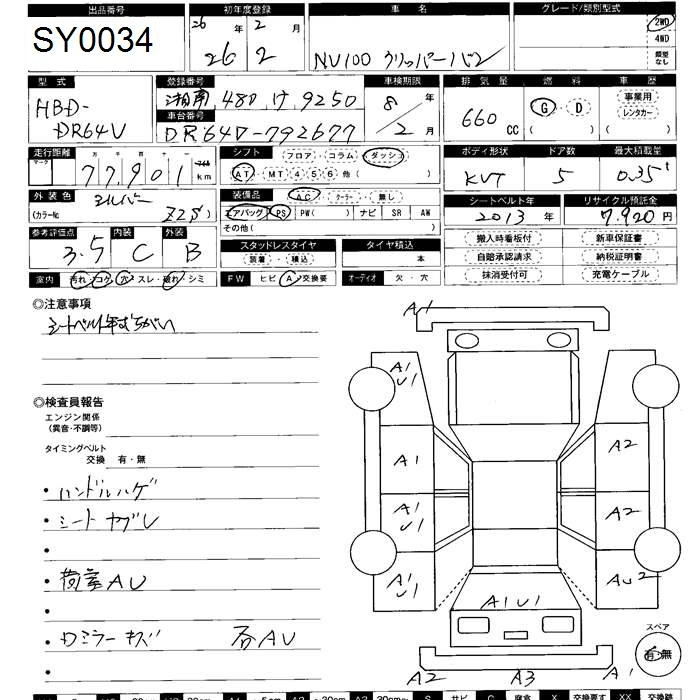 出品番号 初年度登録 車名 グレード/類別型式
SY0034 26年 2月 NV100 クリッパーバン 2WD
26 2 4WD
類型なし
型式 登録番号 車検期限 排気量 燃料 車歴
HBD-DR64V 湘南 480 け 9250 8年 660CC G・D 事業用
車台番号 レンタカー
DR64D-792677 2月
走行距離 シフト フロア・コラム ダッシュ ボディ形状 ドア数 最大積載量
77,901 km AT・MT 4 5 6 他( ) KVT 5 0.35t
外装色 装備品 AC クーラー・無し シートベルト年 リサイクル預託金
シルバー エアバッグ PS PW( ) ナビ SR AW 2013年 7,920円
(カラーNo Z2S) その他( )
参考評価点 内装 外装 スタッドレスタイヤ タイヤ積込 搬入時看板付 新車保証書
3.5 C B 装着・積込 本 自賠承認請求 納税証明書
室内 汚れ・コゲ・穴・スレ・破れ・シミ FW ヒビ A 交換要 オーディオ 欠・穴 抹消受付可 充電ケーブル
◎注意事項
シートベルト年式ちがい
◎検査員報告
エンジン関係
(異音・不調等)
タイミングベルト
交換 有・無
・ハンドルハゲ
・シートヤブレ
・
・荷室AU
・
・ワミラーキズ 各AU
・
A1
A1
U1
A1 A2
A1
U1 A2
A1
U1 AU2
A1U1
スペア
有・無
A2 A3 A1